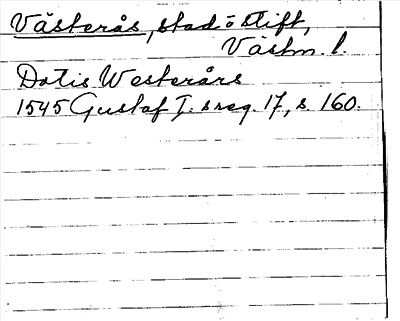 Västerås, stad o stift,
Västm. l.
Datis Westerårs
1545 Gustaf I:s reg. 17, s. 160.